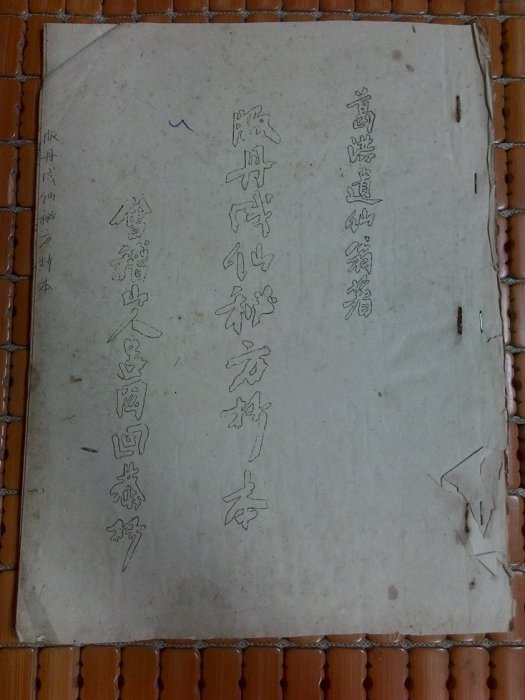 葛洪道仙翁著
服丹成仙秘方抄本
會稽山人呂岡回恭抄
服丹成仙秘方抄本